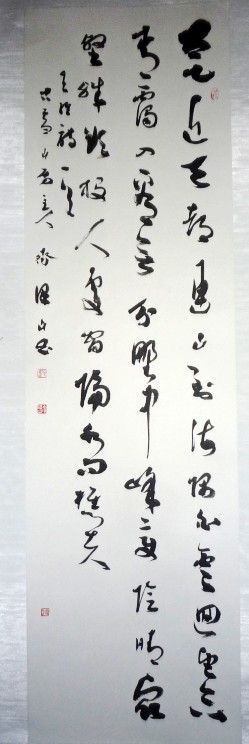 太乙近天都連山到海隅白雲迴望合
青靄入看無分野中峰變陰晴衆
壑殊欲投人處宿隔水問樵夫
王維詩一首
主人